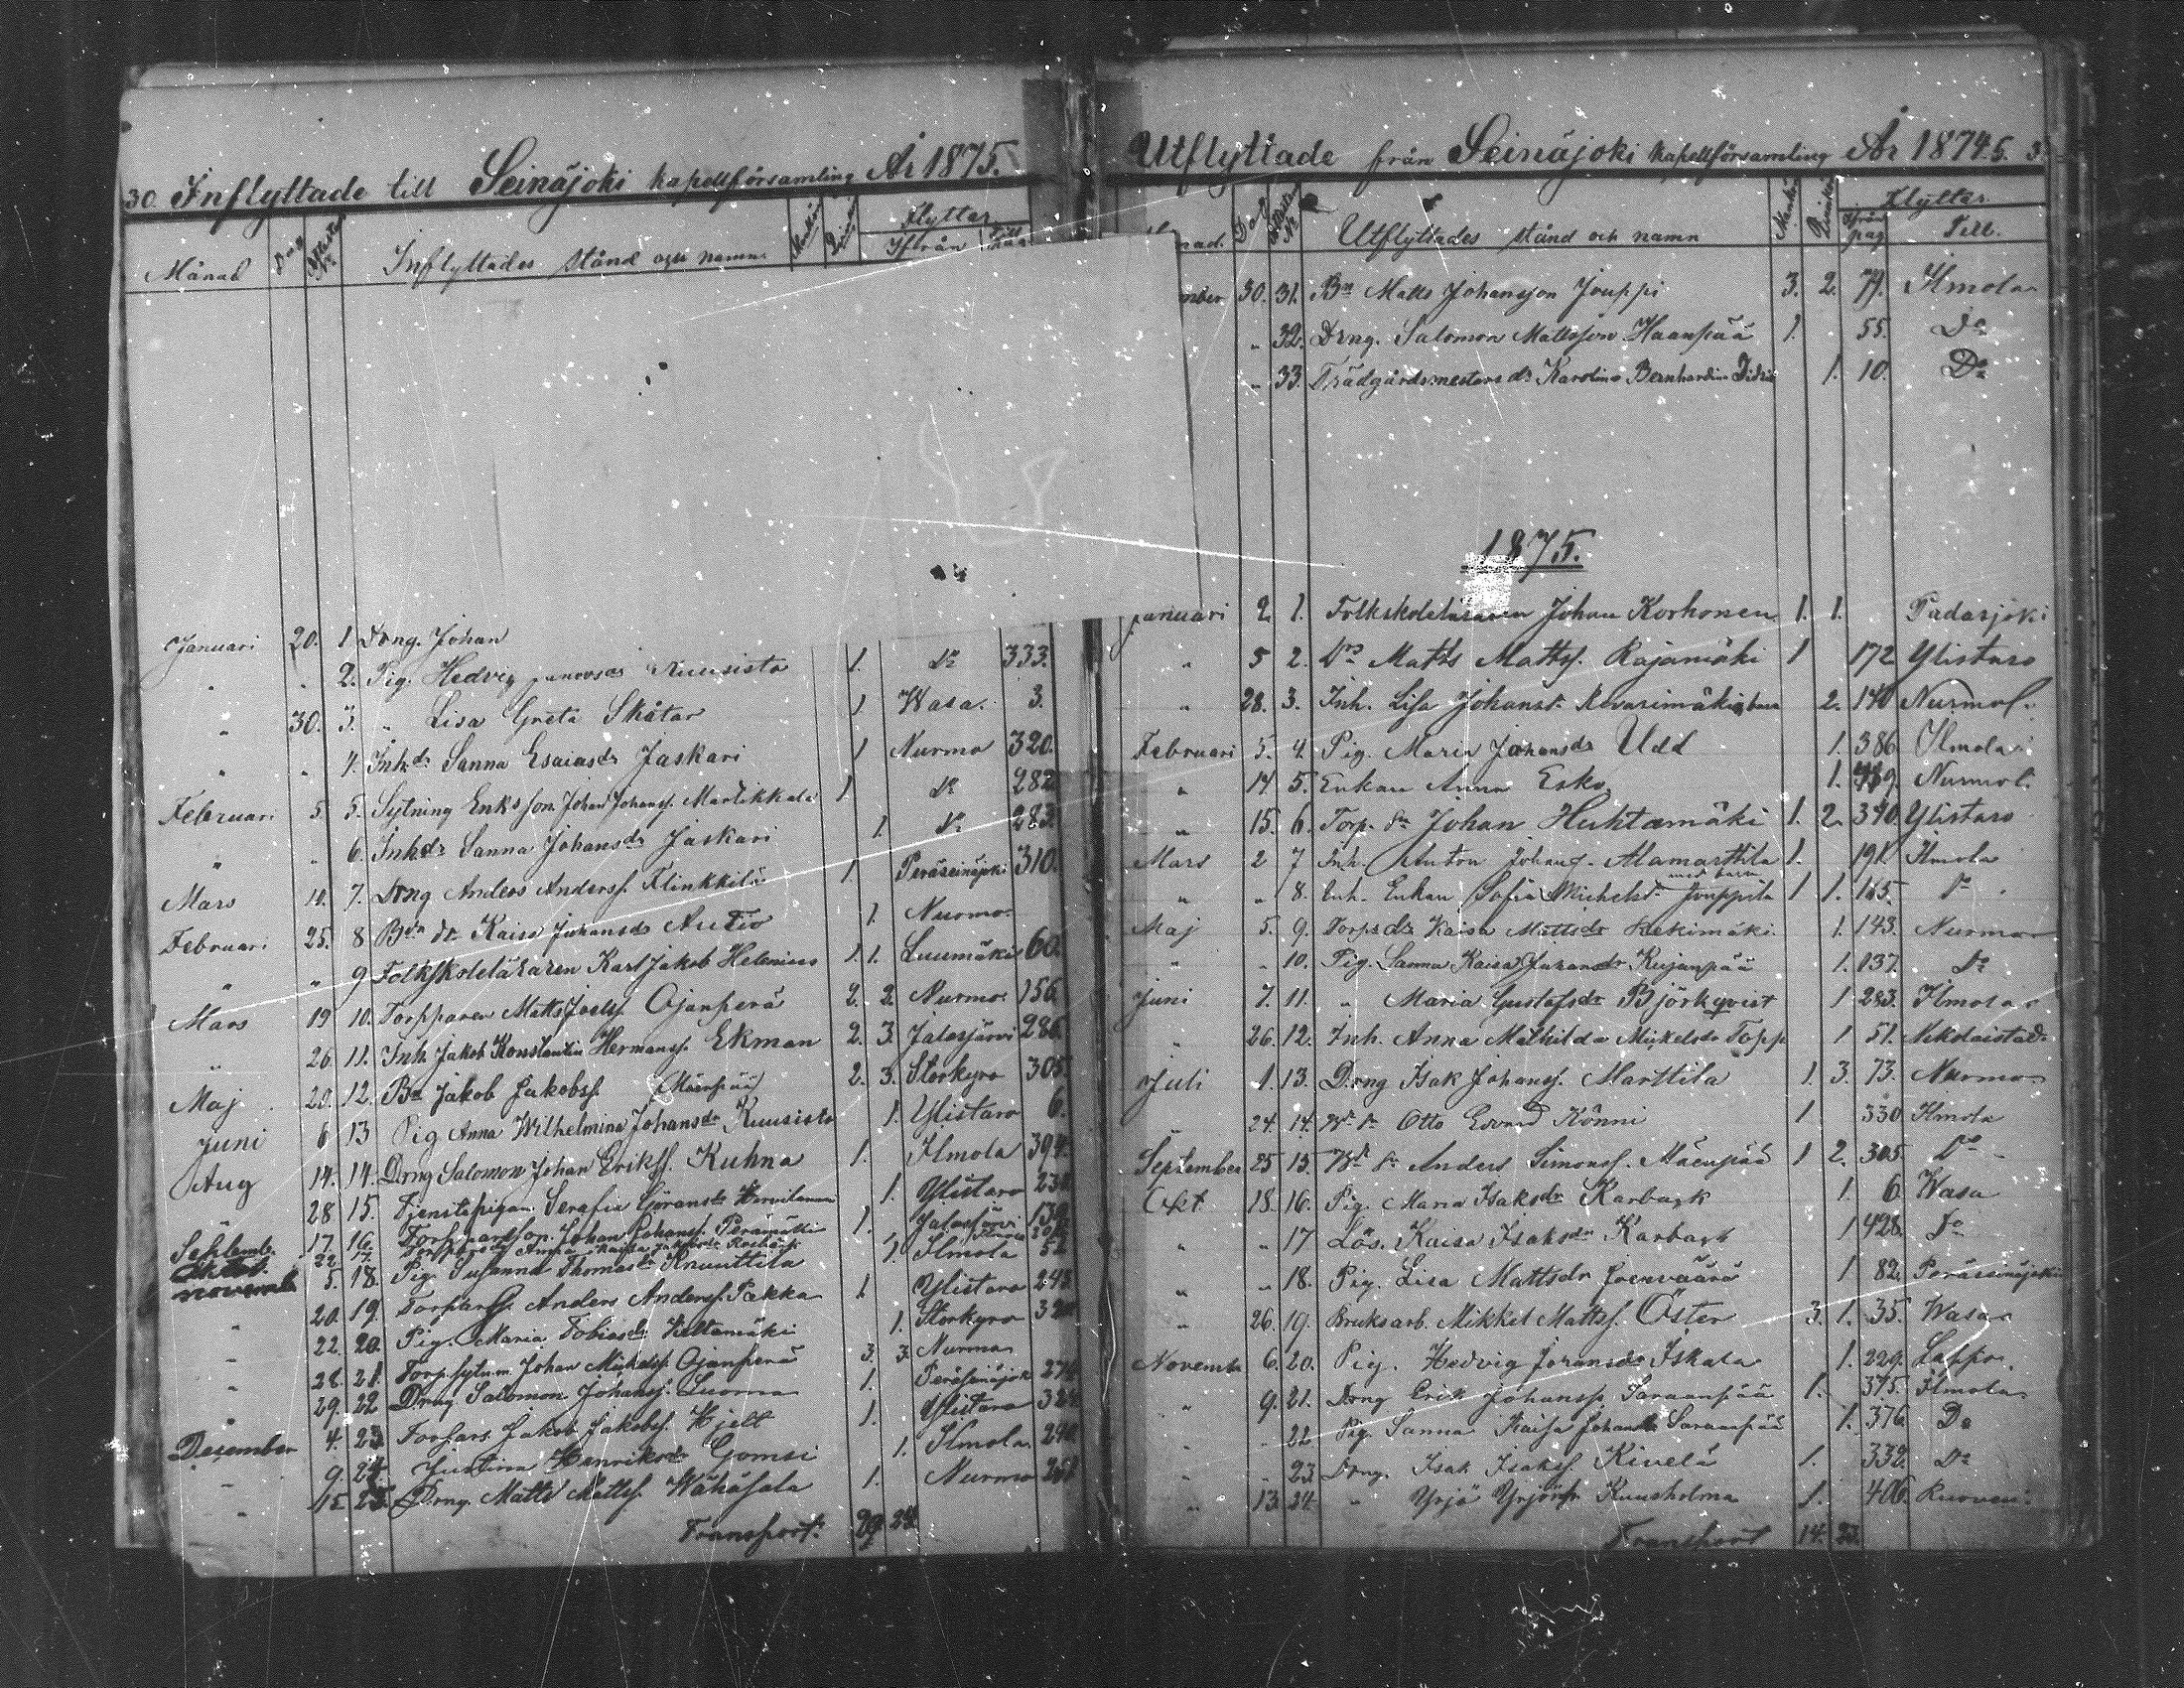 30 Inflyttade till Seinäjoki kapellförsamling År 1875.
Månad Dag Attestens No Inflyttades stånd och namn Mankön Qvinkön Flyttar Ifrån Till pag
Januari 20. 1 Drng. Johan
" " 2. Pig. Hedvig Kuusisto 1. Do 333.
" 30. 3. " Lisa Greta Skåtar 1 Wasa. 3.
" " 4. Inh.dr Sanna Esaiasdr Jaskari 1 Nurmo 320.
Februari 5. 5. Sytning Enks son Johan Johanss. Martikkala 1 Do 282
" " 6. Inhdr Sanna Johansdr Jaskari 1. Do 283.
Mars 10. 7. Drng Anders Anderss. Flinkkilä 1. Peräseinäjoki 310.
Februari 25. 8 Bdn dr Kaisa Johansdr Autio 1. Nurmo.
" " 9 Folkskoleläraren Karl Jakob Helenius 1. 1. Luumäki 60.
Mars 19 10. Torpparen Matts Joelss. Ojanperä 2. 2. Nurmo. 156.
" 26. 11. Inh. Jakob Konstantin Hermanss. Ekman 2. 3. Jalasjärvi 286.
Maj 20. 12. Bn Jakob Jakobss. Mäenpää 2. 3. Storkyro 305.
Juni 6 13 Pig Anna Wilhelmina Johansdr Kuusisto 1. Ylistaro 6.
Aug 14. 14. Drng Salomon Johan Erikss. Kuhna 1. Ilmola 394.
28 15. Tjenstepigan Serafia Göransdr 1. Ylistaro
Septemb. 17. 16. Torpparson Johan Johanss. Perämäki 1. Jalasjärvi
22. 17. Anna Kaisa
novemb. 5. 18. Pig. Susanna Thomasdr Knuuttila 1. Ilmola 52
" 20. 19. Torpars. Anders Anderss. Pakka 1. Ylistaro
" 22. 20. Pig. Maria Tobiasdr 1. Storkyro
" 28. 21. Torp. sytnm Johan Michelss. Ojanperä 3. 3. Nurmo
" 29. 22 Drng Salomon Johanss. Luoma 1. Peräseinäjok
Desember 4. 23. Torpars. Jakob Jakobss. Hjelt 1. Ylistaro
" 9. 24. Justina Henriksdr Gomsi 1. Ilmola
" 15. 25. Drng. Matts Mattss. Wähäsala 1. Nurmo
Transport. 29. 24.
Utflyttade från Seinäjoki kapellförsamling År 1874.5. 3
Dag Attestens No Utflyttades stånd och namn Mankön Qvinkön Flyttar Ifrån pag Till.
mber 30. 31. Bn Matts Johansson Jouppi 3. 2. 79. Ilmola
" 32. Drng. Salomon Mattsson Haanpää 1. 55. Do
" 33. Trädgårdsmestare dr Karolina Bernhardina 1. 10. Do
1875.
Januari 2. 1. Folkskoleläraren Johan Korhonen 1. 1. Padasjoki
" 5 2. Matts Mattss. Rajamäki 1 172 Ylistaro
" 28. 3. Inh. Lisa Johansd. 2. 140 Nurmo
Februari 5. 4. Pig. Maria Johansdr Udd 1. 386. Ilmola
" 14 5. Enkan Anna Esko 1. Nurmo
" 15. 6. Torp. Sn Johan Huhtamäki 1. 2. 340. Ylistaro
Mars 2 7 Inh. Anton Johans. Alamarttila 1. 191. Ilmola
med barn
" " 8. Inh. Enkan Sofia Michelsd. Jouppila 1 1. 165. Do
Maj 5. 9. Torpsdr Kaisa Mattsdr 1. 143. Nurmo
" " 10. Pig. Sanna Kaisa Johansdr Kujanpää 1. 137. Do
Juni 7. 11. " Maria Gustafsdr Björkqvist 1 283. Ilmola
" 26. 12. Inh. Anna Mathilda Mickelsdr Topp 1 51. Nikolaistad
Juli 1. 13. Drng Isak Johanss. Marttila 1. 3. 73. Nurmo
24. 14. Otto Edvard Könni 1 330 Ilmola
September 25 15. Anders Simonss. Mäenpää 1 2. 305. Do
Okt 18. 16. Pig. Maria Isaksdr Karback 1. 6 Wasa
" " 17 Lös. Kaisa Isaksdr Karback 1 428. Do
" " 18. Pig. Lisa Mattsdr 1 82. Peräseinäjoki
" 26. 19. Bruksarb. Mikkel Mattss. Öster 3. 1. 35. Wasa
Novemb. 6. 20. Pig. Hedvig Johansdr Iskala 1. 229. Lappo.
" 9. 21. Drng Erik Johanss. Saraanpää 1. 375. Ilmola
" " 22 Pig. Sanna Kaisa Johansdr Saraanpää 1. 376. Do
" " 23 Drng. Isak Isakss Kivelä 1. 332. Do
" 13. 24. " Yrjö Yrjöss Kuusholma 1. 406. Kuoveri
Transport 14. 22.